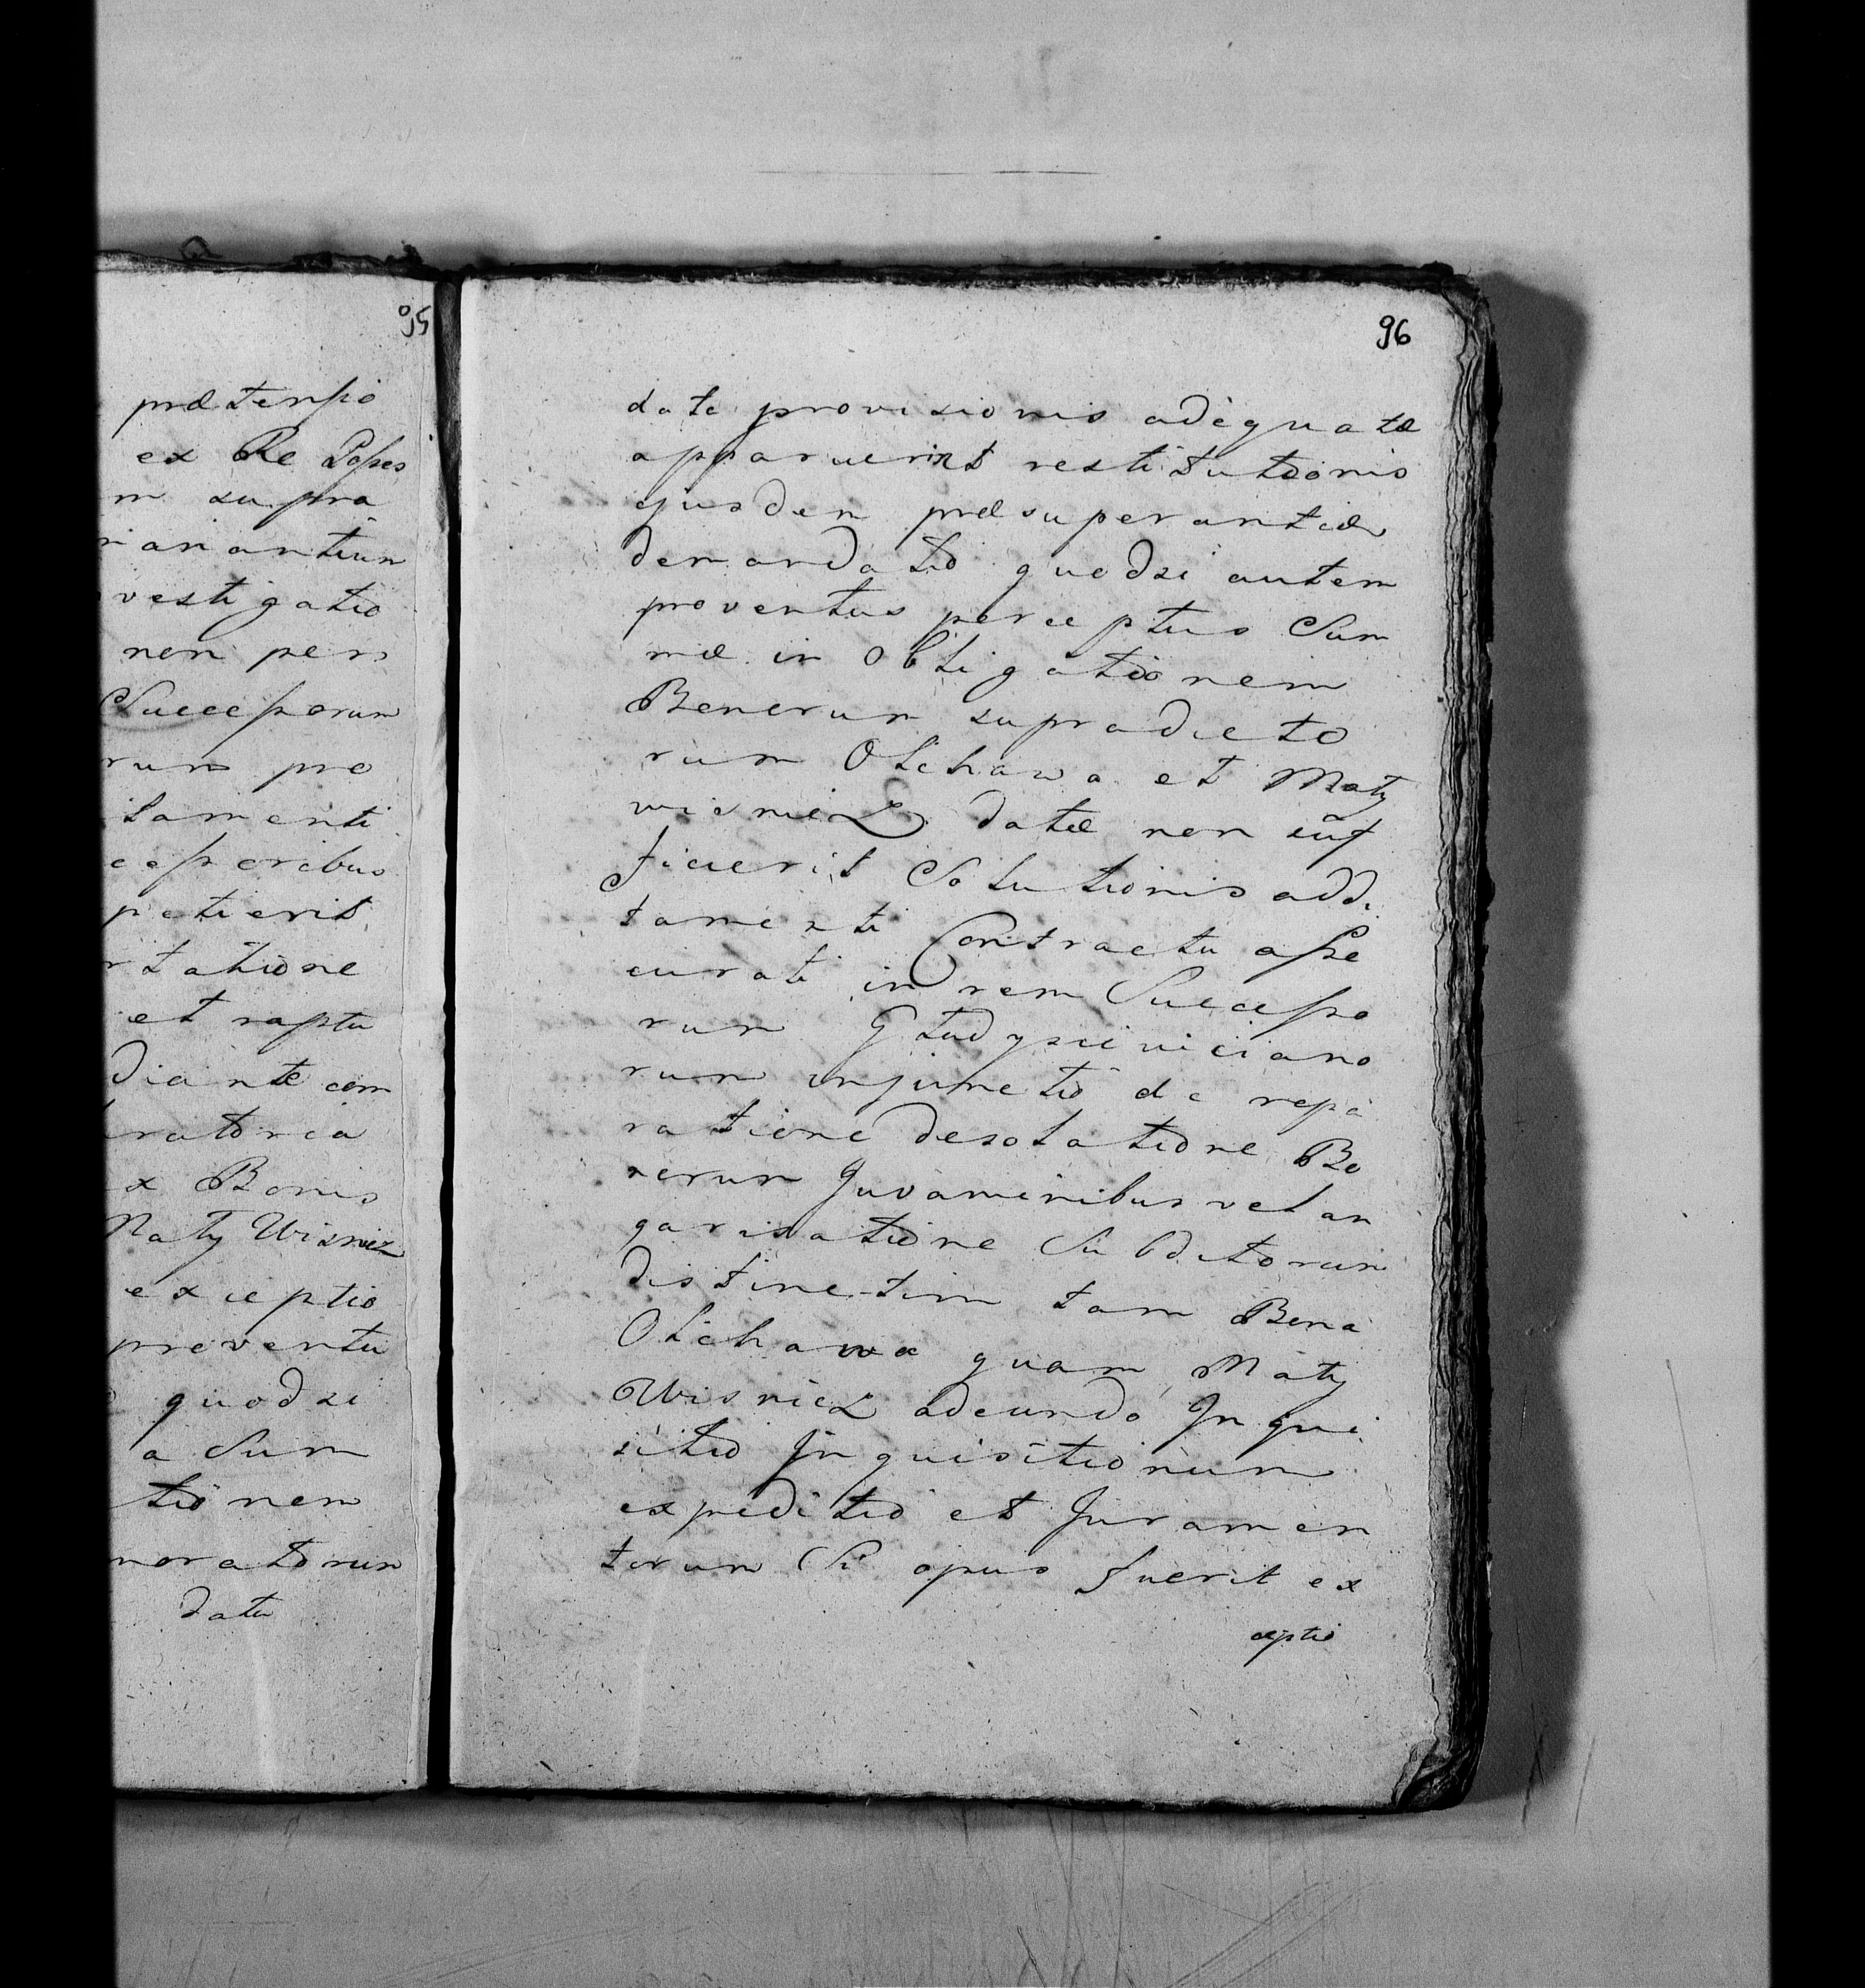 95
prætensio
ex Re Posses
m supra
rianantium
vestigatio
non per
Successorum
rum pro
tamenti
cessoribus
petierit
rtatione
et raptu
diante com
ratoria
x Bonis
Maty Wisnicz
exceptio
proventu
quodsi
a Sum
tionem
noratorum
datu
96
date provisionis adequatæ
apparuerint restitutionis
ejusdem præsuperantiæ
demandatio quodsi autem
proventus perceptus Sum
mæ in obligationem
Bonorum supradicto
rum Olchawa et Maty
wisnicz datæ non suf
ficierit Solutionis addi
tamenti Contractu asse
curati in rem Successo
rum Gludysieviciano
rum injunctio de repa
ratione desolatione Bo
norum Juvaminibus vel an
garisatione Subditorum
distinctim tam Bona
Olchawa quam Maty
Wisnicz adeundo Inqui
sitio Inquisitionum
expeditio et Juramen
torum Si opus fuerit ex
ceptio